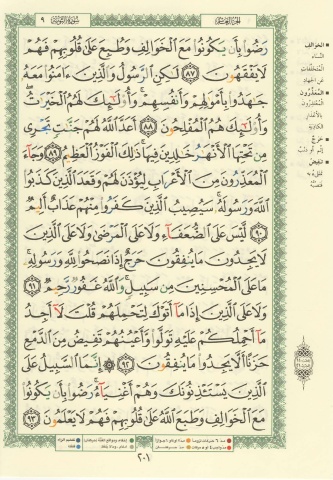 سورة التوبة ٩
الجزء العاشر
رَضُوا۟ بِأَن يَكُونُوا۟ مَعَ ٱلْخَوَالِفِ وَطُبِعَ عَلَىٰ قُلُوبِهِمْ فَهُمْ
لَا يَفْقَهُونَ ﴿٨٧﴾ لَـٰكِنِ ٱلرَّسُولُ وَٱلَّذِينَ ءَامَنُوا۟ مَعَهُۥ
جَـٰهَدُوا۟ بِأَمْوَٰلِهِمْ وَأَنفُسِهِمْ ۚ وَأُو۟لَـٰٓئِكَ لَهُمُ ٱلْخَيْرَٰتُ ۖ
وَأُو۟لَـٰٓئِكَ هُمُ ٱلْمُفْلِحُونَ ﴿٨٨﴾ أَعَدَّ ٱللَّهُ لَهُمْ جَنَّـٰتٍ تَجْرِى
مِن تَحْتِهَا ٱلْأَنْهَـٰرُ خَـٰلِدِينَ فِيهَا ۚ ذَٰلِكَ ٱلْفَوْزُ ٱلْعَظِيمُ ﴿٨٩﴾ وَجَآءَ
ٱلْمُعَذِّرُونَ مِنَ ٱلْأَعْرَابِ لِيُؤْذَنَ لَهُمْ وَقَعَدَ ٱلَّذِينَ كَذَبُوا۟
ٱللَّهَ وَرَسُولَهُۥ ۚ سَيُصِيبُ ٱلَّذِينَ كَفَرُوا۟ مِنْهُمْ عَذَابٌ أَلِيمٌ
﴿٩٠﴾ لَّيْسَ عَلَى ٱلضُّعَفَآءِ وَلَا عَلَى ٱلْمَرْضَىٰ وَلَا عَلَى ٱلَّذِينَ
لَا يَجِدُونَ مَا يُنفِقُونَ حَرَجٌ إِذَا نَصَحُوا۟ لِلَّهِ وَرَسُولِهِۦ ۚ
مَا عَلَى ٱلْمُحْسِنِينَ مِن سَبِيلٍ ۚ وَٱللَّهُ غَفُورٌ رَّحِيمٌ ﴿٩١﴾
وَلَا عَلَى ٱلَّذِينَ إِذَا مَآ أَتَوْكَ لِتَحْمِلَهُمْ قُلْتَ لَآ أَجِدُ
مَآ أَحْمِلُكُمْ عَلَيْهِ تَوَلَّوا۟ وَّأَعْيُنُهُمْ تَفِيضُ مِنَ ٱلدَّمْعِ
حَزَنًا أَلَّا يَجِدُوا۟ مَا يُنفِقُونَ ﴿٩٢﴾ ۞ إِنَّمَا ٱلسَّبِيلُ عَلَى
ٱلَّذِينَ يَسْتَـْٔذِنُونَكَ وَهُمْ أَغْنِيَآءُ ۚ رَضُوا۟ بِأَن يَكُونُوا۟
مَعَ ٱلْخَوَالِفِ وَطَبَعَ ٱللَّهُ عَلَىٰ قُلُوبِهِمْ فَهُمْ لَا يَعْلَمُونَ ﴿٩٣﴾
الخوالف
النساء
المتخلفات
عن الجهاد
المعذرون
المعتذرون
بالأعذار
الكاذبة
حرج
إثم أو ذنب
تفيض
تمتلئ به
فتصبه
٢٠١